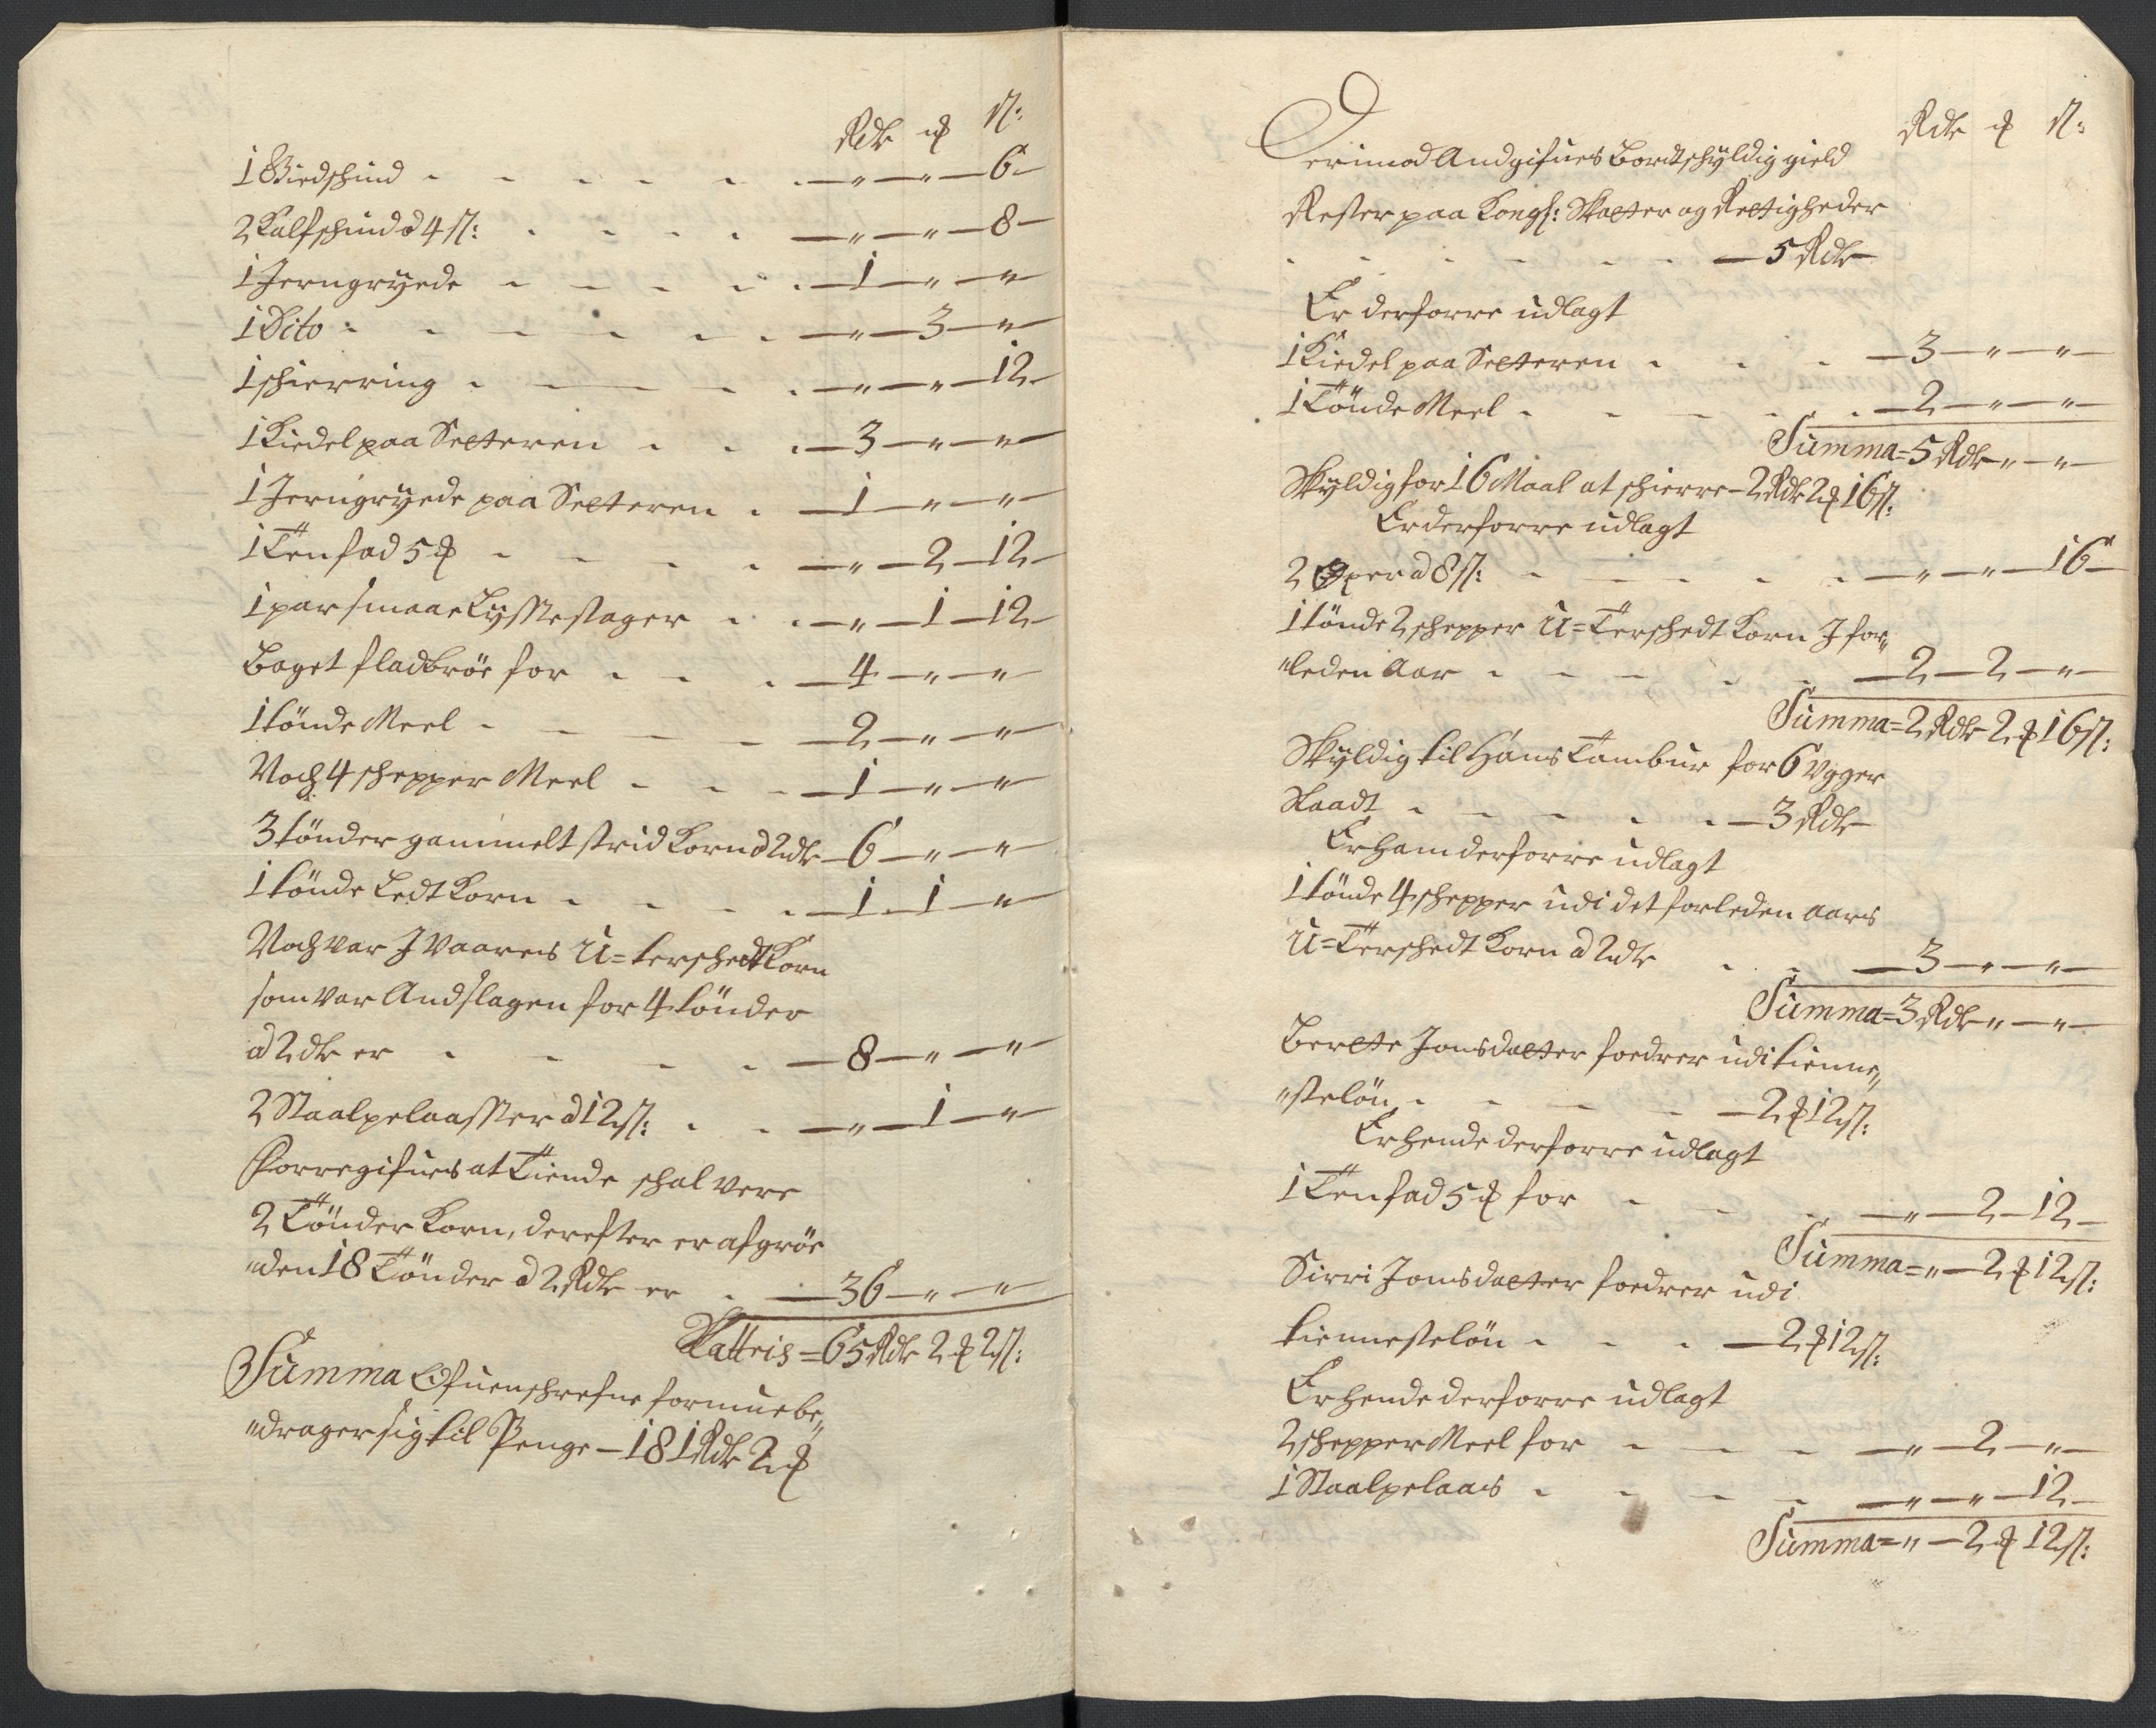 Rdr ɱ ß:
1 Giedschind - - - - - - „ — „ — 6 -
2 Kalfschind a 4 ß: - - - - „ — „ — 8 -
1 Jerngryede - - - - - 1 — „ — „
1 Dito - - - - - - „ — 3 — „
1 schierring - - - - „ — „ — 12 -
1 Kiedel paa Setteren - - - 3 — „ — „
1 Jerngryede paa Setteren - 1 — „ — „
1 Tenfad 5 ɱ - - - - „ — 2 — 12 -
1 par smaae Lyssestager - - „ — 1 — 12 -
Baget fladbröe for - - - 4 — „ — „
1 tönde Meel - - - - 2 — „ — „
Noch 4 schepper Meel - - - 1 — „ — „
3 tönder gammelt strid Korn a 2 rdr - 6 — „ — „
1 tönde Ledt Korn - - - - 1 - 1 — „
Noch var J Vaares U=terschedt Korn
som var Andslagen for 4 tönder
a 2 dr er - - - - 8 — „ — „
2 Staalpelaasster a 12 ß: - - „ — 1 — „
Forregifues at Tiende schal vere
2 Tönder Korn, derefter er afgröe
„den 18 Tönder a 2 Rdr er - - 36 — „ — „
Latteris = 65 Rdr 2 ɱ 2 ß:
Summa Ofuenschrefne formue be„
„drager sig til Penge - 181 Rdr 2 ɱ
Rdr ɱ ß:
Derimod Andgifues Bordtschyldig gield
Rester paa Kongl: Skatter og Rettigheder
- - - - - - - 5 Rdr
Er derforre udlagt
1 Kiedel paa Setteren - - - 3 — „ — „
1 Tönde Meel - - - - - 2 — „ — „
Summa = 5 Rdr „ — „
Skyldig for 16 Maal at schierre - 2 Rdr 2 ɱ 16 ß:
Er derforre udlagt
2 a 8 ß: - - - - - „ — „ — 16 -
1 tönde 2 schepper U=Terschedt Korn J for„
„leden Aar - - - - - 2 — 2 — „
Summa = 2 Rdr 2 ɱ 16 ß:
Skyldig til Hans Tambur for 6 Vgger
- - - - - 3 Rdr
Er ham derforre udlagt
1 tönde 4 schepper udi det forleden aars
U=Terschedt Korn a 2 dr - - 3 — „ — „
Summa = 3 Rdr „ — „
Berete Jonsdatter foedrer udi tienne„
„steløn - - - - 2 ɱ 12 ß:
Er hende derforre udlagt
1 Tenfad 5 ɱ for - - - „ — 2 — 12 -
Summa = „ — 2 ɱ 12 ß:
Sirri Jonsdatter foedrer udi
tiennesteløn - - - 2 ɱ 12 ß:
Er hende derforre udlagt
2 schepper Meel for - - - „ — 2 — „
1 Staalpelaas - - - - „ — „ — 12 -
Summa = „ — 2 ɱ 12 ß: